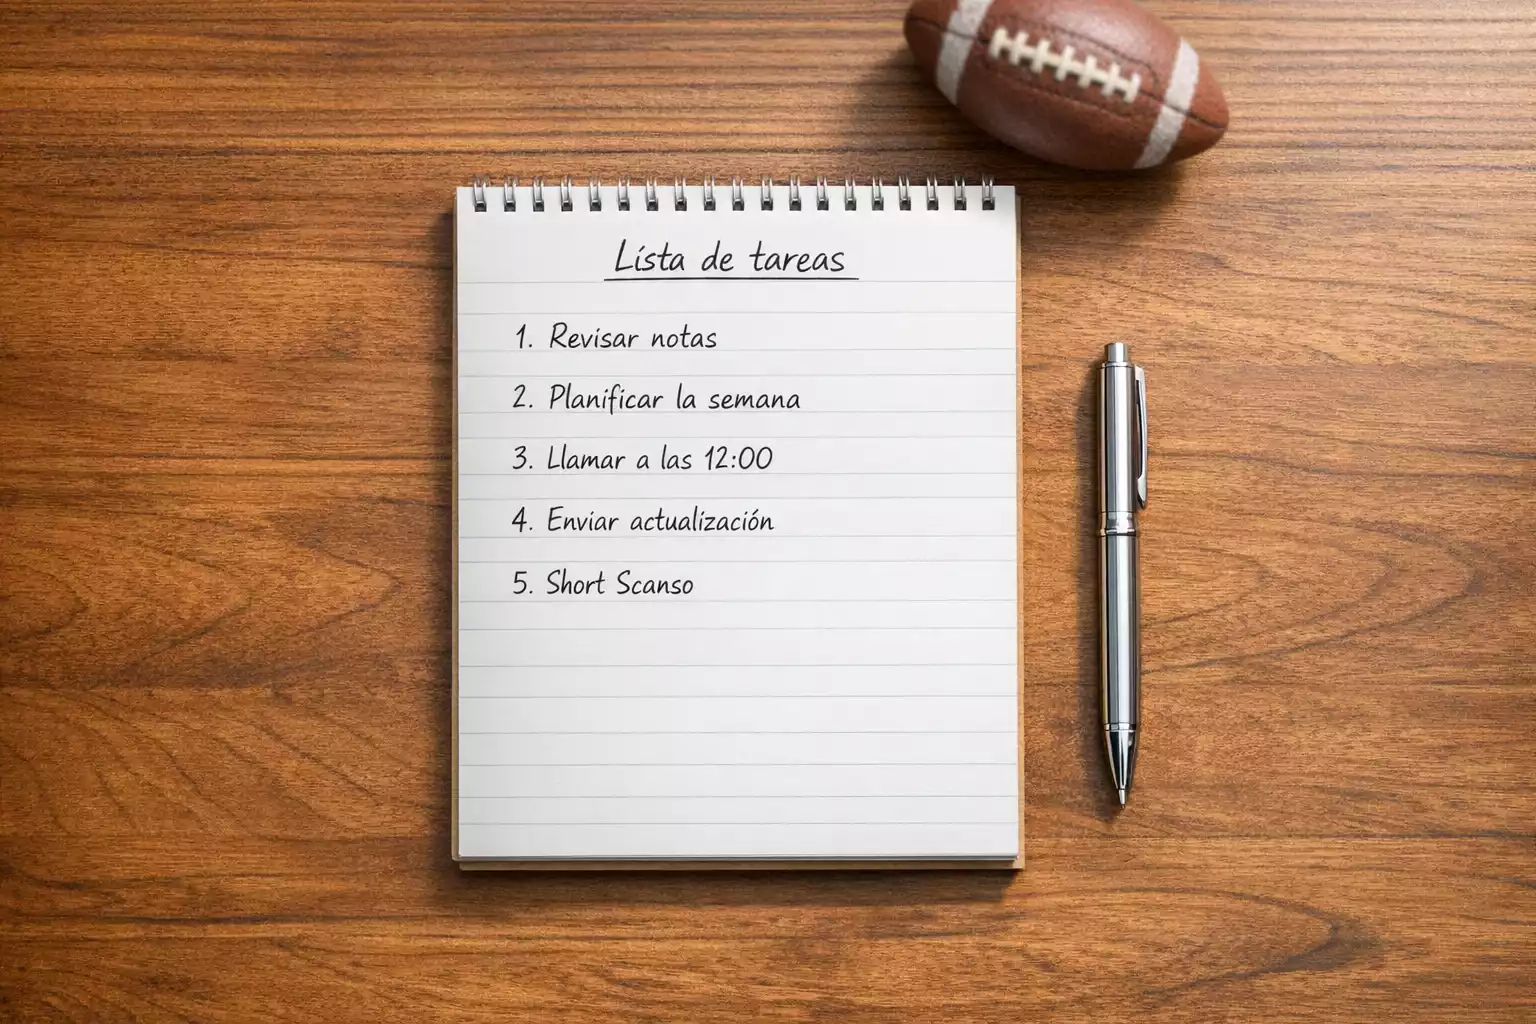 Lista de tareas
1. Revisar notas
2. Planificar la semana
3. Llamar a las 12:00
4. Enviar actualización
5. Short Scanso